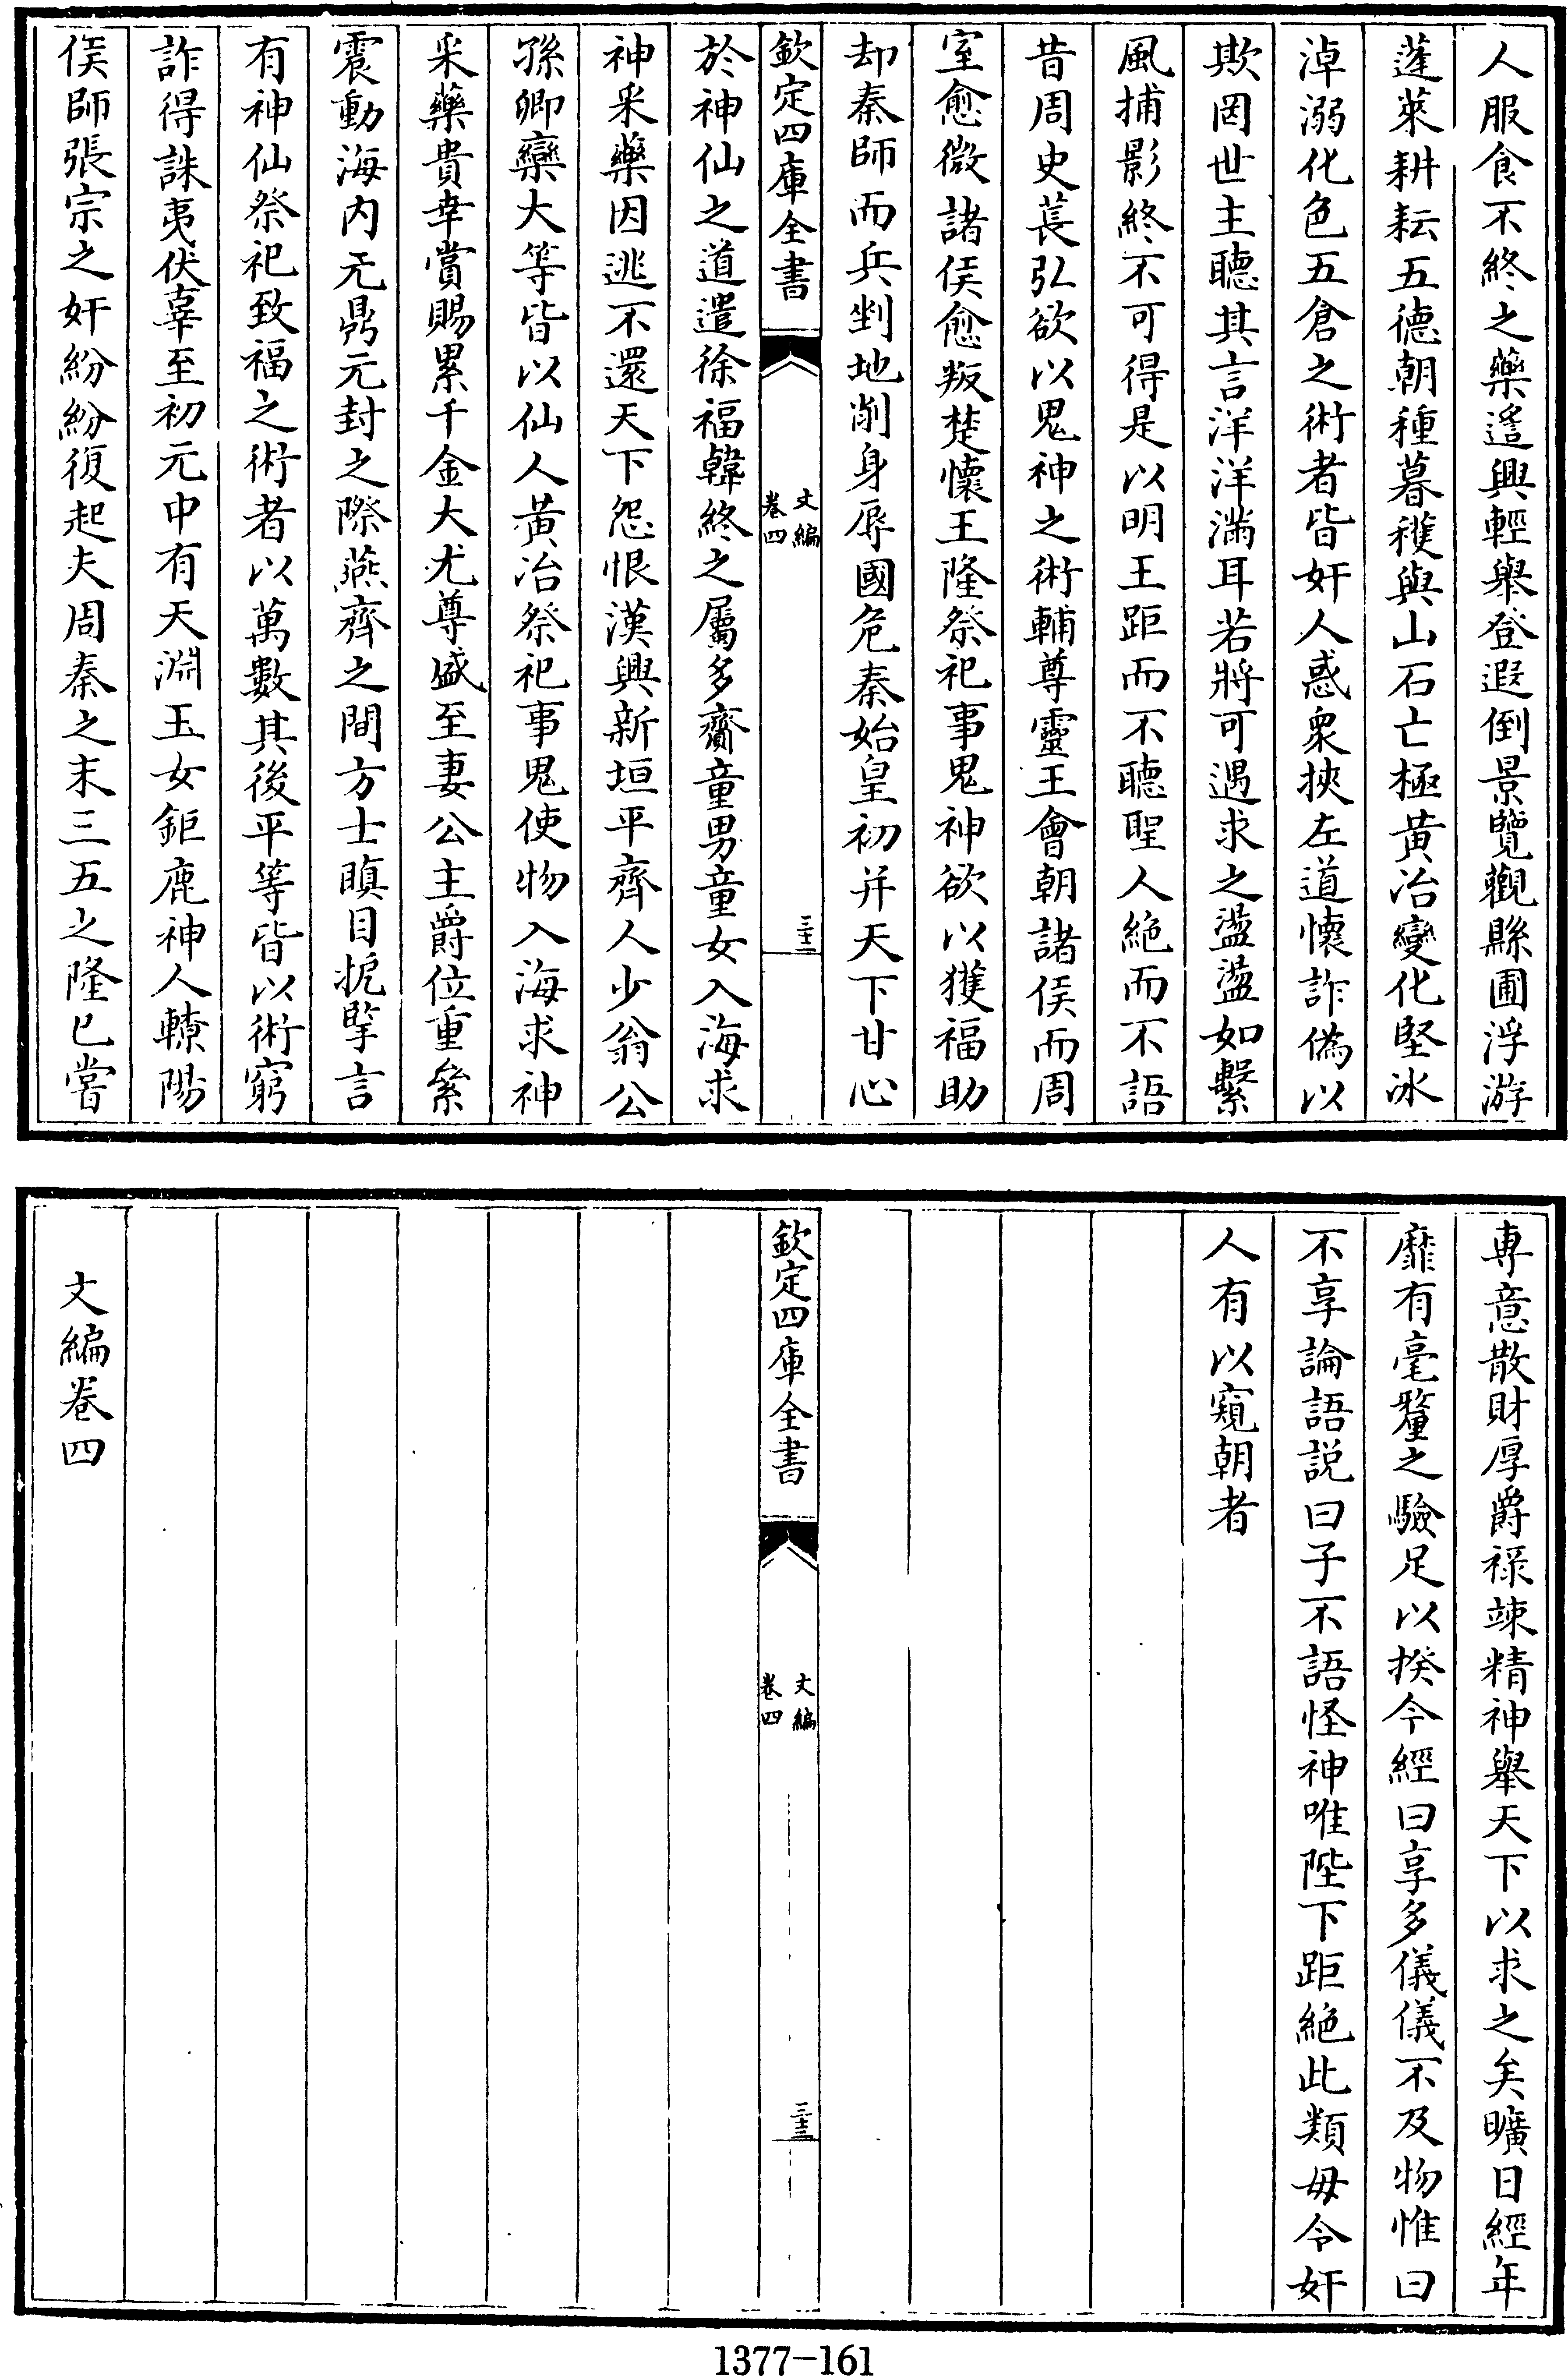 人服食不終之藥遙興輕舉登遐倒景覽觀縣圃浮游
蓬萊耕耘五德朝種暮穫與山石亡極黄冶變化堅冰
淖溺化色五倉之術者皆奸人惑衆挾左道懷詐偽以
欺罔世主聽其言洋洋滿耳若將可遇求之盪盪如繫
風捕影終不可得是以明王距而不聽聖人絶而不語
昔周史萇弘欲以鬼神之術輔尊靈王會朝諸侯而周
室愈微諸侯愈叛楚懷王隆祭祀事鬼神欲以獲福助
却秦師而兵剉地削身辱國危秦始皇初并天下甘心
欽定四庫全書
文編
卷四
三十二
於神仙之道遣徐福韓終之屬多齎童男童女入海求
神采藥因逃不還天下怨恨漢興新垣平齊人少翁公
孫卿欒大等皆以仙人黃冶祭祀事鬼使物入海求神
采藥貴幸賞賜累千金大尤尊盛至妻公主爵位重絫
震動海内元鼎元封之際燕齊之間方士瞋目扼掔言
有神仙祭祀致福之術者以萬數其後平等皆以術窮
詐得誅夷伏辜至初元中有天淵玉女鉅鹿神人轑陽
侯師張宗之奸紛紛復起夫周秦之末三五之隆已嘗
専意散財厚爵禄竦精神舉天下以求之矣曠日經年
靡有毫釐之驗足以揆今經曰享多儀儀不及物惟曰
不享論語説曰子不語怪神唯陛下距絶此類毋令奸
人有以窺朝者
欽定四庫全書
文編
卷四
三十三
文編卷四
1377-161